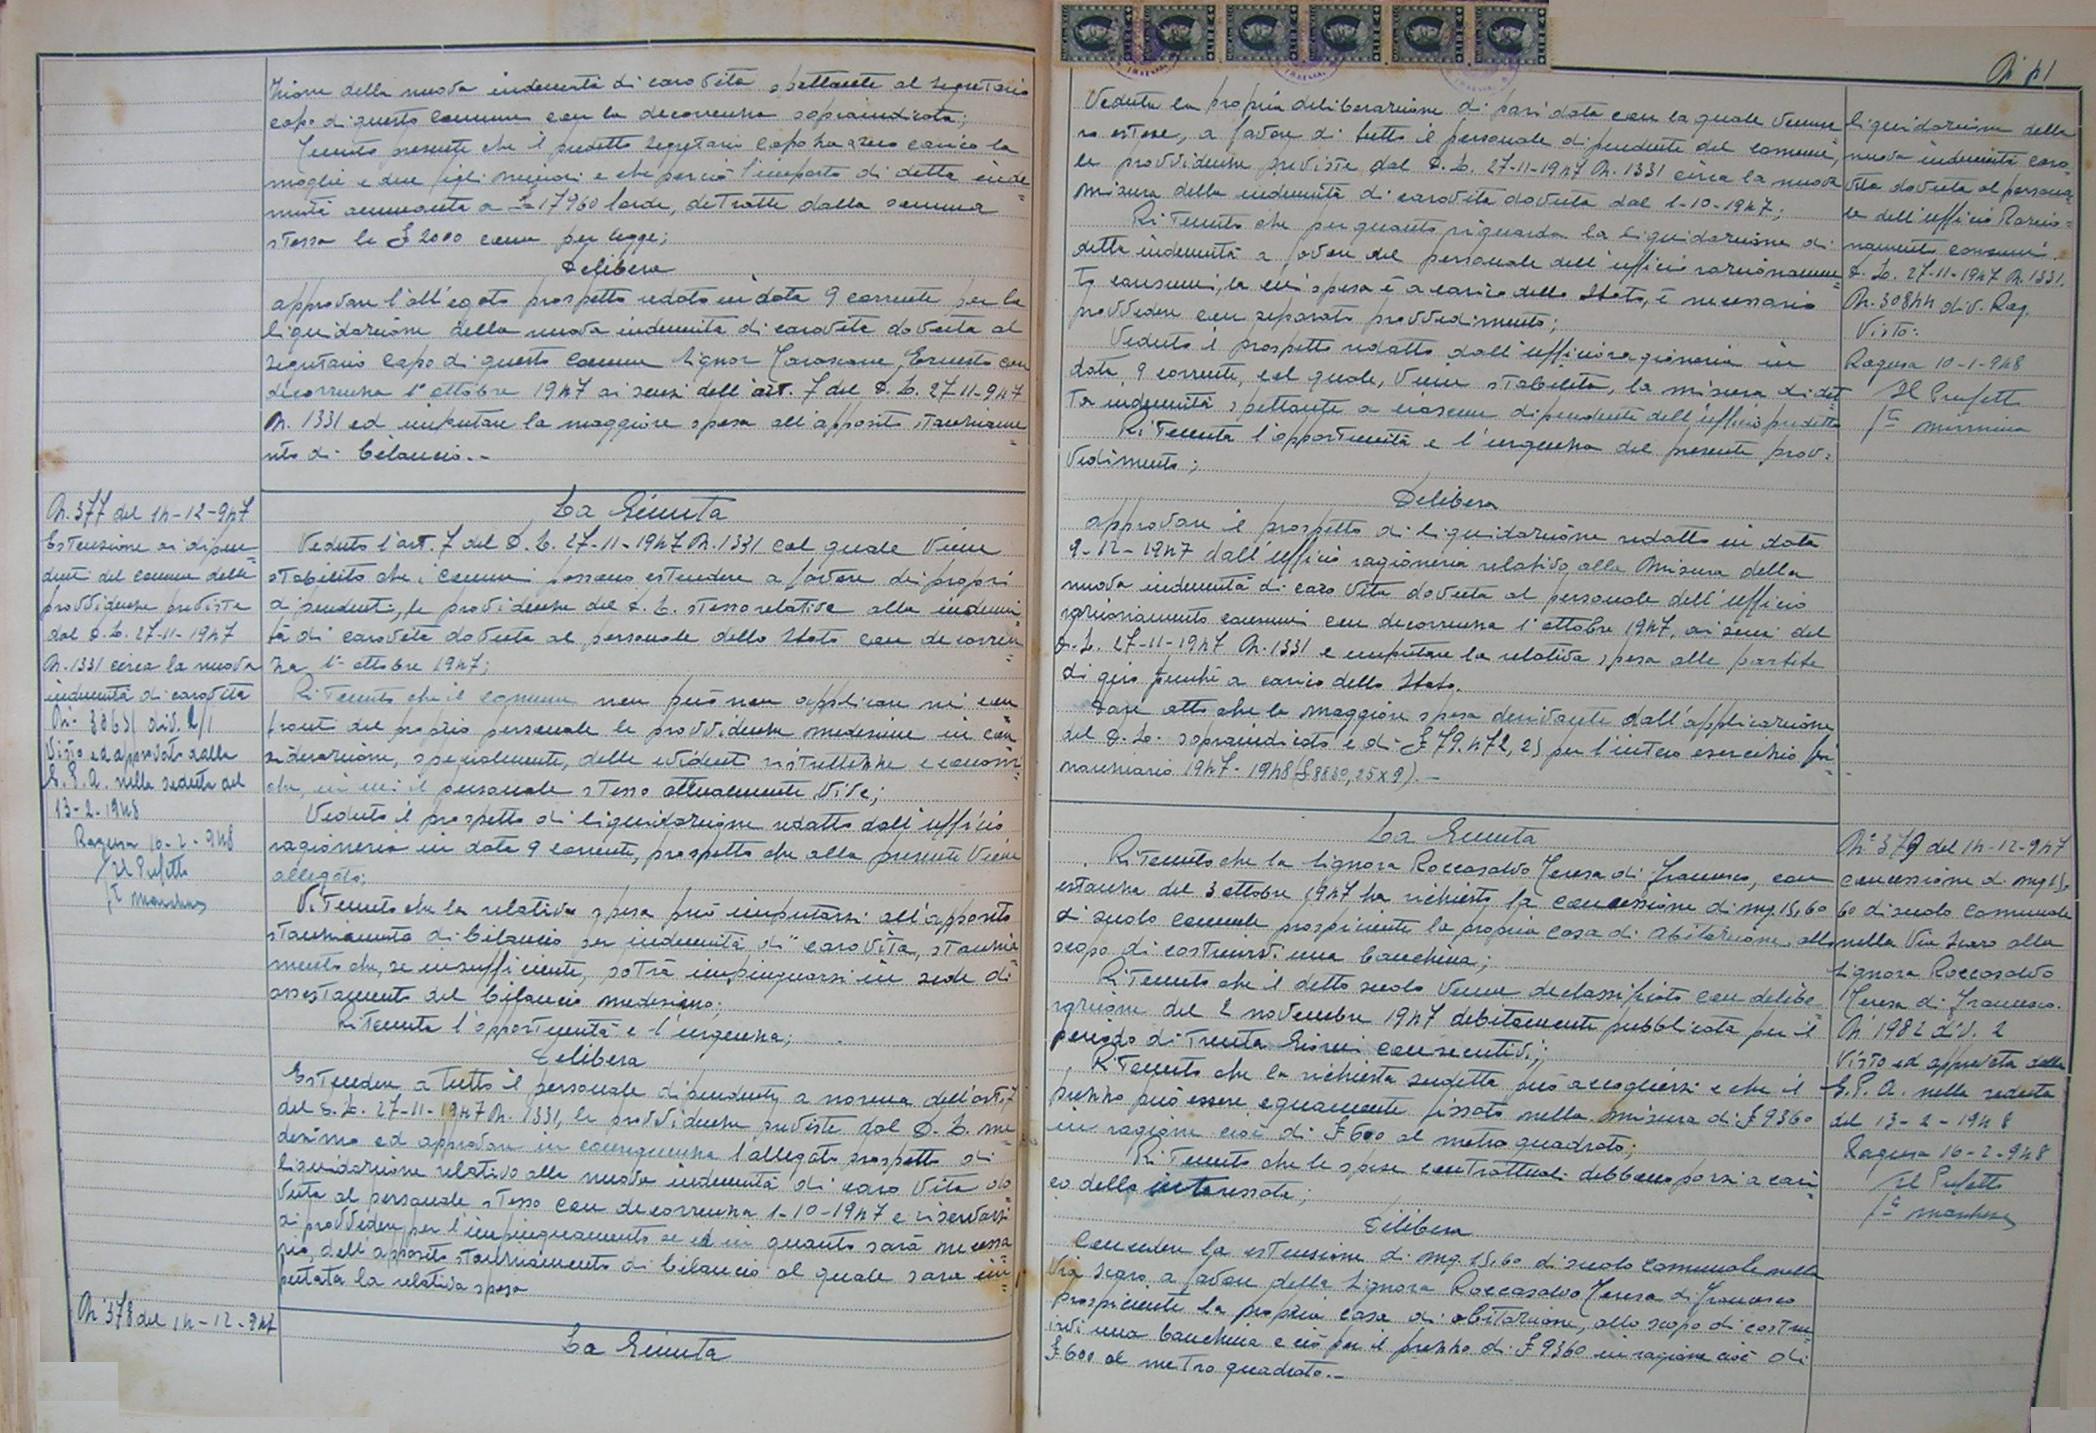 zione della nuova indennità di caro vita spettante al segretario
capo di questo comune con la decorrenza sopraindicata;
Tenuto presente che il predetto segretario capo ha a suo carico la
moglie e due figli minori e che perciò l'importo di detta inden=
nità ammonta a L. 17960 lorde, detratte dalla somma
stessa le £ 2000 come per legge;
Delibera
approvare l'allegato prospetto redatto in data 9 corrente per la
liquidazione della nuova indennità di carovita dovuta al
segretario capo di questo comune Signor Ernesto con
decorrenza 1° ottobre 1947 ai sensi dell'art. 7 del D.L. 27-11-947
N. 1331 ed imputare la maggiore spesa all'apposito stanziame=
nto di bilancio.-
N. 377 del 14-12-947
Estensione ai dipen=
denti del comune delle
provvidenze previste
dal D.L. 27-11-1947
N. 1331 circa la nuova
indennità di carovita
div. 2/1
Visto ed approvato dalla
G.P.A. nella seduta del
13-2-1948
Ragusa 16-2-948
Il Prefetto
La Giunta
Veduto l'art. 7 del D.L. 27-11-1947 N. 1331 col quale viene
stabilito che i comuni possano estendere a favore dei propri
dipendenti, le providenze del D.L. stesso relative alla indenni
tà di carovita dovuta al personale dello Stato con decorren=
za 1° ottobre 1947;
Ritenuto che il comune non può non applicare nei con
fronti del proprio personale le provvidenze medesime in con=
siderazione, specialmente, delle evidenti ristrettezze economi=
che, in cui il personale stesso attualmente vive;
Veduto il prospetto di liquidazione redatto dall'ufficio
ragioneria in data 9 corrente, prospetto che alla presente viene
allegato;
Ritenuto che la relativa spesa può imputarsi all'apposito
stanziamento di bilancio per indennità di carovita, stanzia
mento che, se insufficiente, potrà impinguarsi in sede di
assestamento del bilancio medesimo;
Ritenuta l'opportunità e l'urgenza;
Delibera
Estendere a tutto il personale dipendente, a norma dell'art. 7
del D.L. 27-11-1947 N. 1331, le provvidenze previste dal D.L. me=
desimo ed approvare in conseguenza l'allegato prospetto di
liquidazione relativo alla nuova indennità di caro vita do
vuta al personale stesso con decorrenza 1-10-1947 e riservarsi
di provvedere per l'impinguamento se ed in quanto sarà necessa
rio, dell'apposito stanziamento di bilancio al quale sarà im=
putata la relativa spesa
N° 378 del 14-12-947
La Giunta
Veduta la propria deliberazione di pari data con la quale venne
ro estese, a favore di tutto il personale dipendente del comune,
le provvidenze previste dal D.L. 27-11-1947 N. 1331 circa la nuova
misura della indennità di carovita dovuta dal 1-10-1947;
Ritenuto che per quanto riguarda la liquidazione di
detta indennità a favore del personale dell'ufficio razionamen=
to consumi, la cui spesa è a carico dello Stato, è necessario
provvedere con separato provvedimento;
Veduto il prospetto redatto dall'ufficio ragioneria in
data 9 corrente, col quale, viene stabilita, la misura di det=
ta indennità spettante a ciascun dipendente dell'ufficio predetto
Ritenuta l'opportunità e l'urgenza del presente prov=
vedimento;
Delibera
approvare il prospetto di liquidazione redatto in data
9-12-1947 dall'ufficio ragioneria relativo alla misura della
nuova indennità di caro vita dovuta al personale dell'ufficio
razionamento consumi con decorrenza 1° ottobre 1947, ai sensi del
D.L. 27-11-1947 N. 1331 e imputare la relativa spesa alle partite
di giro perchè a carico dello Stato.
Dare atto che la maggiore spesa derivante dall'applicazione
del D.L. sopraindicato è di £ 79.472,25 per l'intero esercizio fi=
nanziario 1947-1948 (£ 8830,25 x 9).-
liquidazione della
nuova indennità caro=
vita dovuta al persona=
le dell'ufficio Razio=
namento consumi.
D.L. 27-11-1947 N. 1331.
N. 30844 div. Rag.
Visto:
Ragusa 10-1-948
Il Prefetto
La Giunta
Ritenuto che la Signora Roccasalvo Teresa di Francesco, con
estanza del 3 ottobre 1947 ha richiesto la concessione di mq. 15,60
di suolo comunale prospiciente la propria casa di abitazione, allo
scopo di costruirvi una banchina;
Ritenuto che il detto suolo venne declassificato con delibe=
razione del 2 novembre 1947 debitamente pubblicata per il
periodo di trenta giorni consecutivi;
Ritenuto che la richiesta sudetta può accogliersi e che il
prezzo può essere equamente fissato nella misura di £ 9360
in ragione cioè di £ 600 al metro quadrato;
Ritenuto che le spese contrattuali debbano porsi a cari=
co della interessata;
Delibera
Concedere la estensione di mq. 15,60 di suolo comunale nella
Via Scaro a favore della Signora Roccasalvo Teresa di Francesco
prospiciente la propria casa di abitazione, allo scopo di costru
irvi una banchina e ciò per il prezzo di £ 9360 in ragione cioè di
£ 600 al metro quadrato.-
N° 379 del 14-12-947
concessione di mq 15,
60 di suolo comunale
nella Via Scaro alla
Signora Roccasalvo
Teresa di Francesco.
N° 1982 div. 2
Visto ed approvata dalla
G.P.A. nella seduta
del 13-2-1948
Ragusa 16-2-948
Il Prefetto